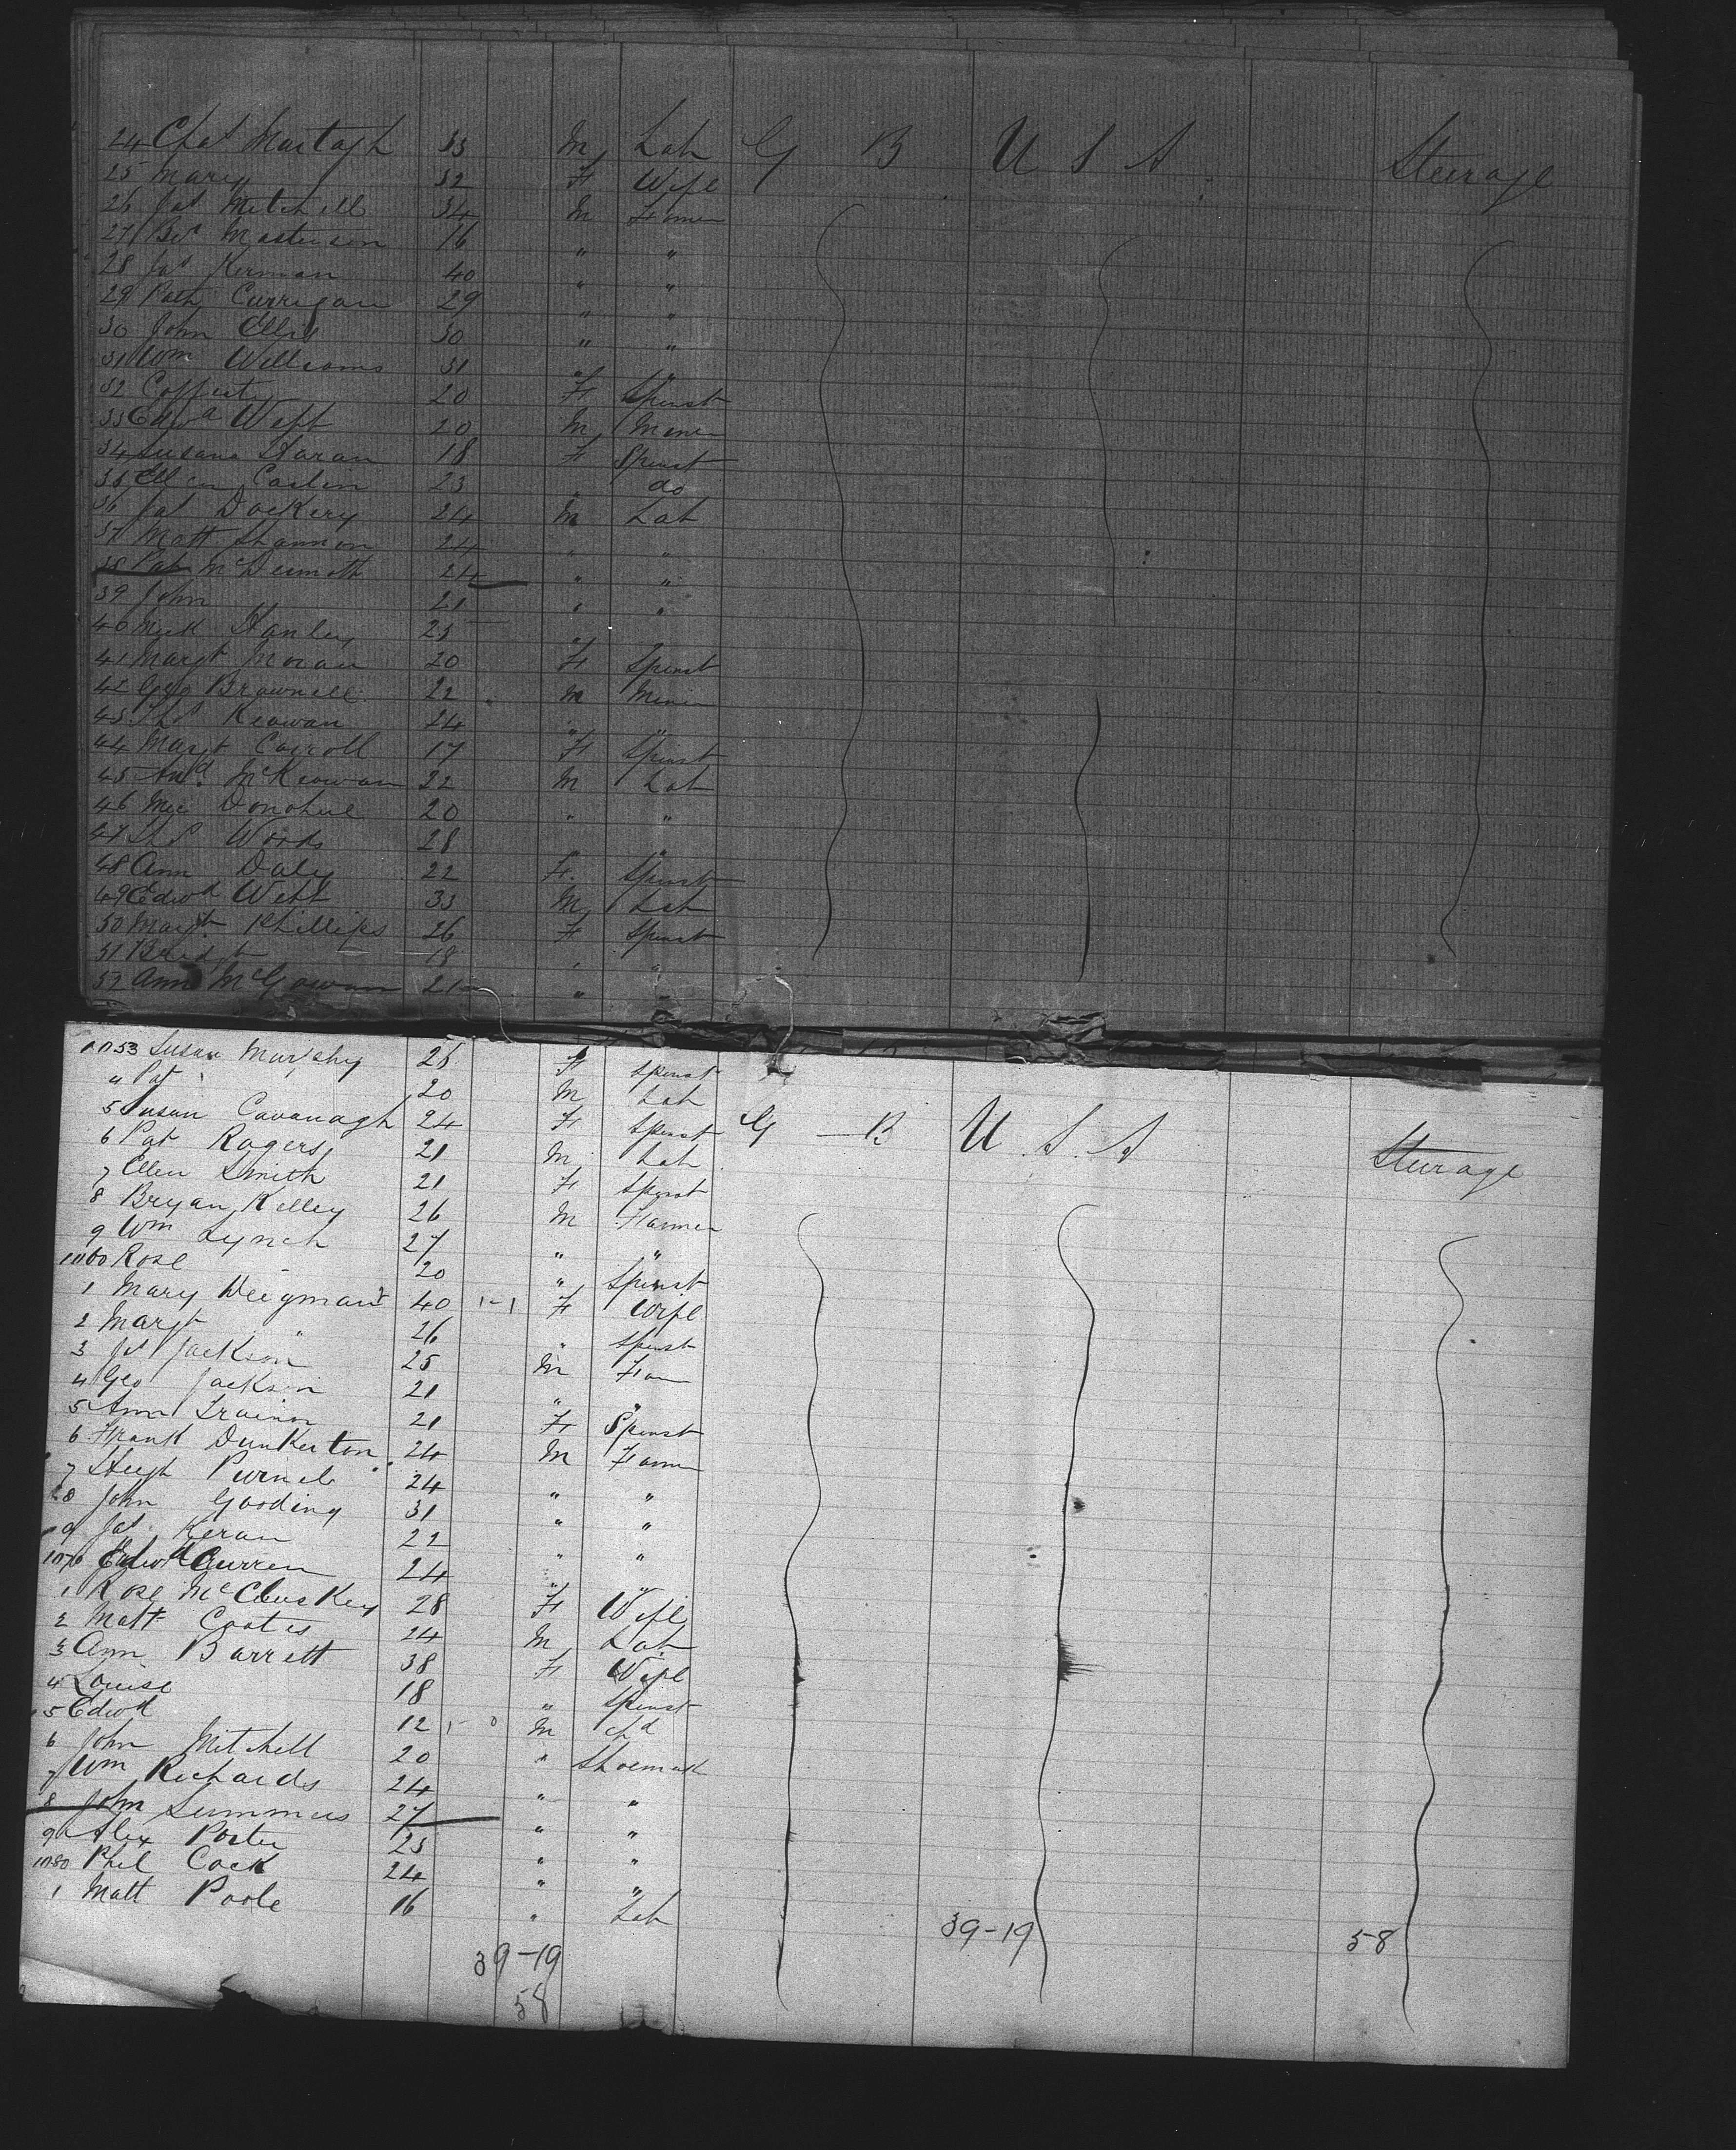 24 Chas Murtagh 33 M Lab G B U S A Steerage
25 Mary 32 F Wife
26 Jas Mitchell 34 M Farmer
27 Bd Masterson 16 " "
28 Jas Kernan 40 " "
29 Path Currigan 29 " "
30 John Ellis 30 " "
31 Wm Williams 31 " "
32 Cafferty 20 F Spinst
33 Edwd West 20 M Miner
34 Susana Haran 18 F Spinst
35 Ellen Caslin 23 " do
36 Jas Dockery 24 M Lab
37 Matt Shannon 24 " "
38 Pat McDermott 24 " "
39 John 21 " "
40 Mick Hanley 25 "
41 Margt Moran 20 F Spinst
42 Geo Brownell 22 M Miner
43 Ths Keowan 24 " "
44 Margt Carroll 17 F Spinst
45 And McKeowan 22 M Lab
46 Mic Donohue 20 " "
47 Ths Woods 28 " "
48 Ann Daly 22 F. Spinst
49 Edwd Webb 33 M Lab
50 Margt Phillips 26 F Spinst
51 Bridgt 18 " "
52 Ann McGowan 21 " "
1053 Susan Murphy 26 F Spinst
4 Pat 20 M Lab
5 Susan Cavanagh 24 F Spinst G - B U. S. A Steerage
6 Pat Rogers 21 M Lab
7 Ellen Smith 21 F Spinst
8 Bryan Kelley 26 M Farmer
9 Wm Lynch 27 " "
1060 Rose 20 " Spinst
1 Mary Weigmant 40 1-1 F Wife
2 Margt " 26 " Spinst
3 Js Jackson 25 M Farm
4 Geo Jackson 21 " "
5 Ann Trainor 21 F Spinst
6 Frank Dunkerton 24 M Farm
7 Hugh Purnel 24 " "
8 John Gooding 31 " "
9 Jas Keran 22 " "
1070 Edwd Curren 24 " "
1 Rose McCluskey 28 F Wife
2 Matt Coates 24 M Lab
3 Ann Barrett 38 F Wife
4 Louise 18 " Spinst
5 Edwd 12 1-0 M chd
6 John Mitchell 20 " Shoemak
7 Wm Richards 24 " "
8 John Summers 27 " "
9 Alex Porter 23 " "
1080 Phil Cock 24 " "
1 Matt Poole 16 " Lab
39-19 39-19 58
58